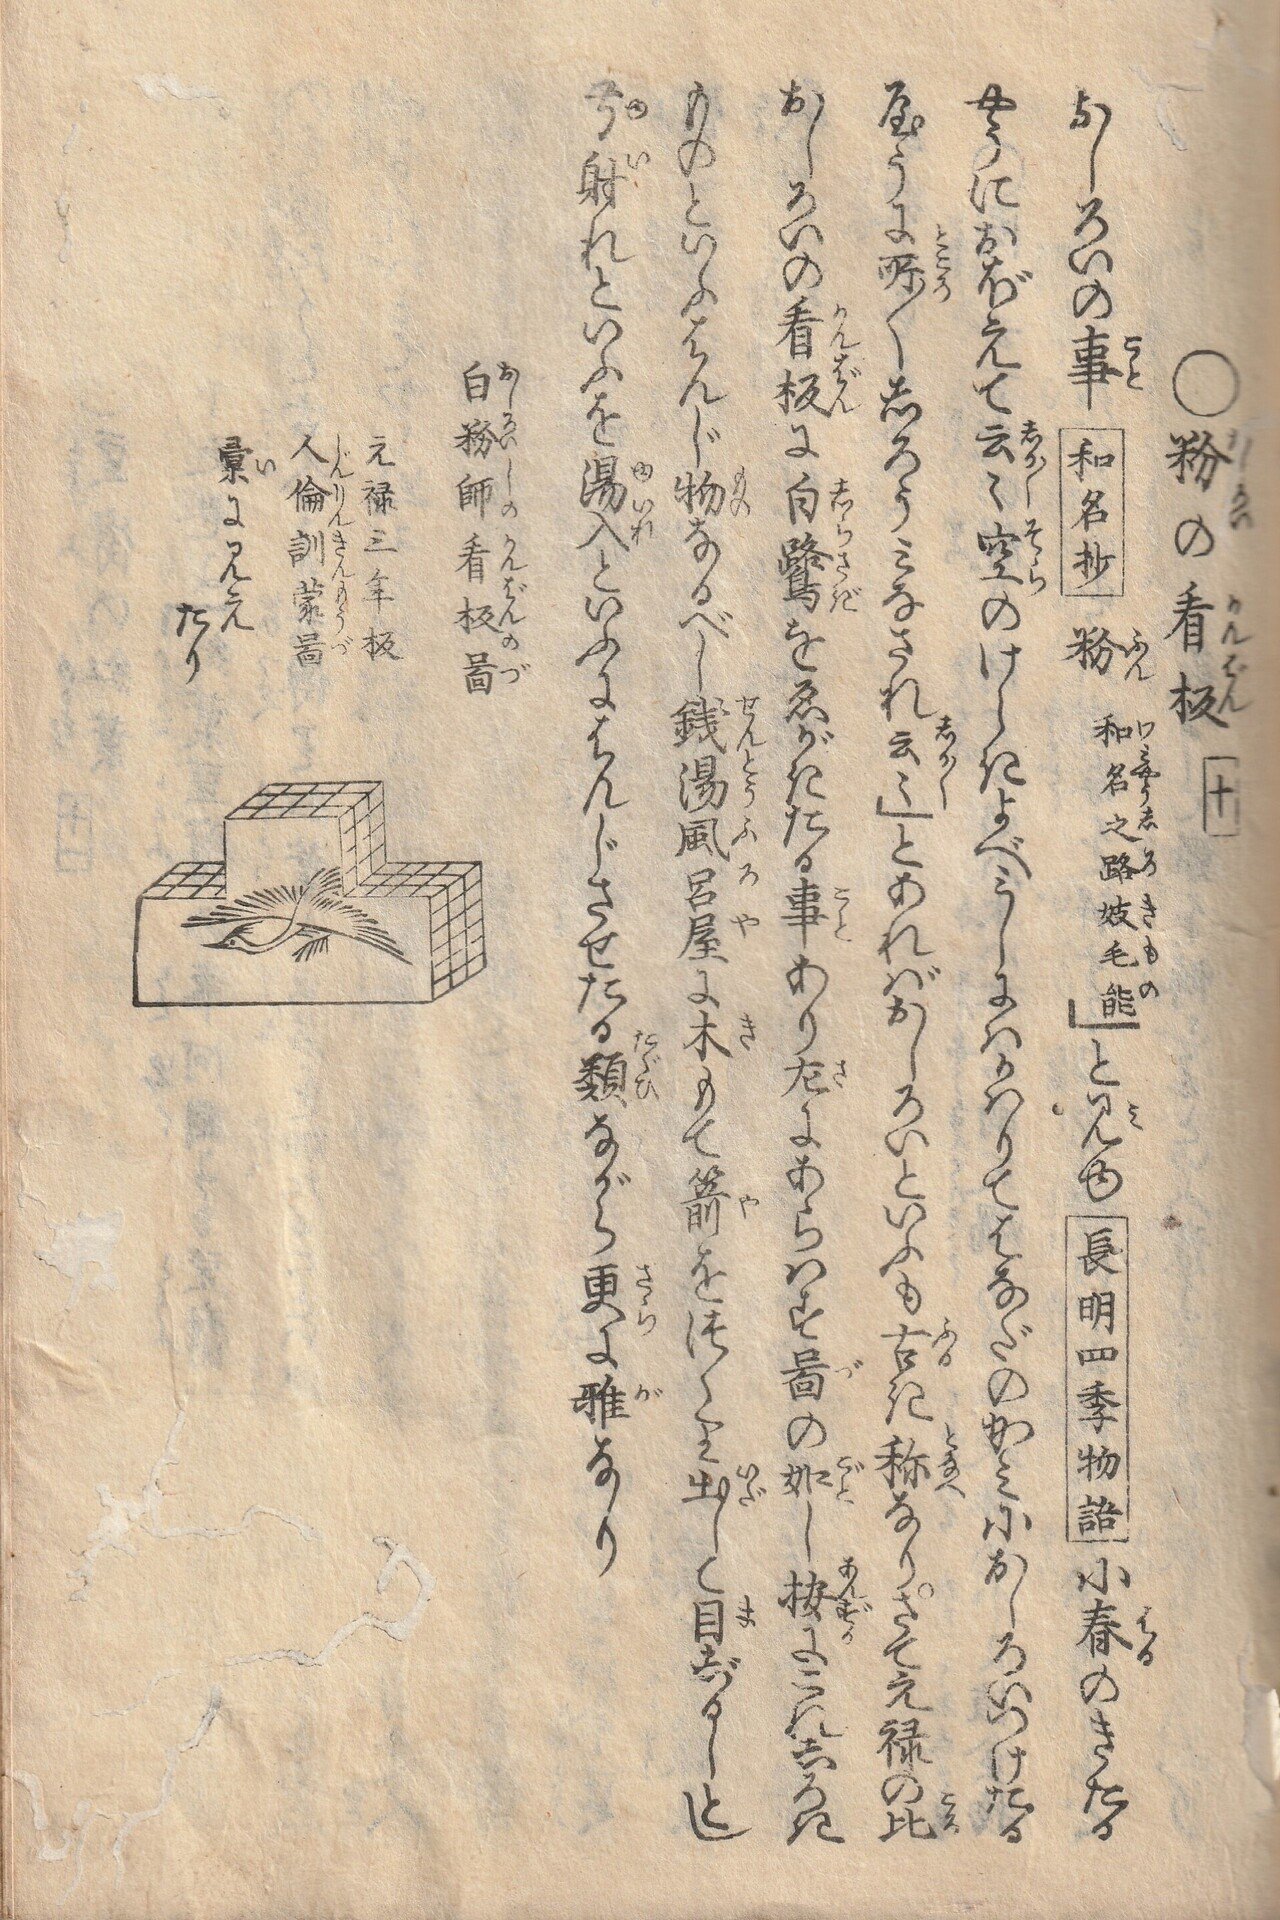 ○粉の看板 十
おしろいの事 和名抄 粉 和名之路妓毛能」と見ゆ 長明四季物語 小春のきたる
やうにおぼえて云々空のけしきよべ　しにはかはりてはなだのかみにおしろいつけたる
やうに所〳〵しろうみなされ云々」とあればおしろいといふも古き称なり。さて元禄の比
おしろいの看板に白鷺をゑがきたる事あり左にあらはす啚の如し按にこれしろき
ものといふはんじ物なるべし銭湯風呂屋に木もて箭をつくり出して目じるしとし
弓射れといふを湯入といふにはんじさせたる類ながら更に雅なり
白粉師看板啚
元禄三年板
人倫訓蒙啚
彙に見え
たり